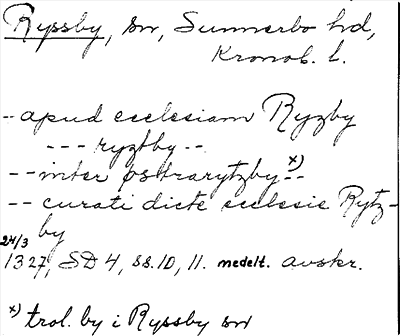 Ryssby, sn, Sunnerbo hd,
Kronob. l.
-- apud ecclesiam Ryzby
--- ryztby --
-- inter østrarytzby x) --
-- curati dicte ecclesie Rytz-
by
24/3
1327, SD 4, ss. 10, 11. medelt. avskr.
x) trol. by i Ryssby sn